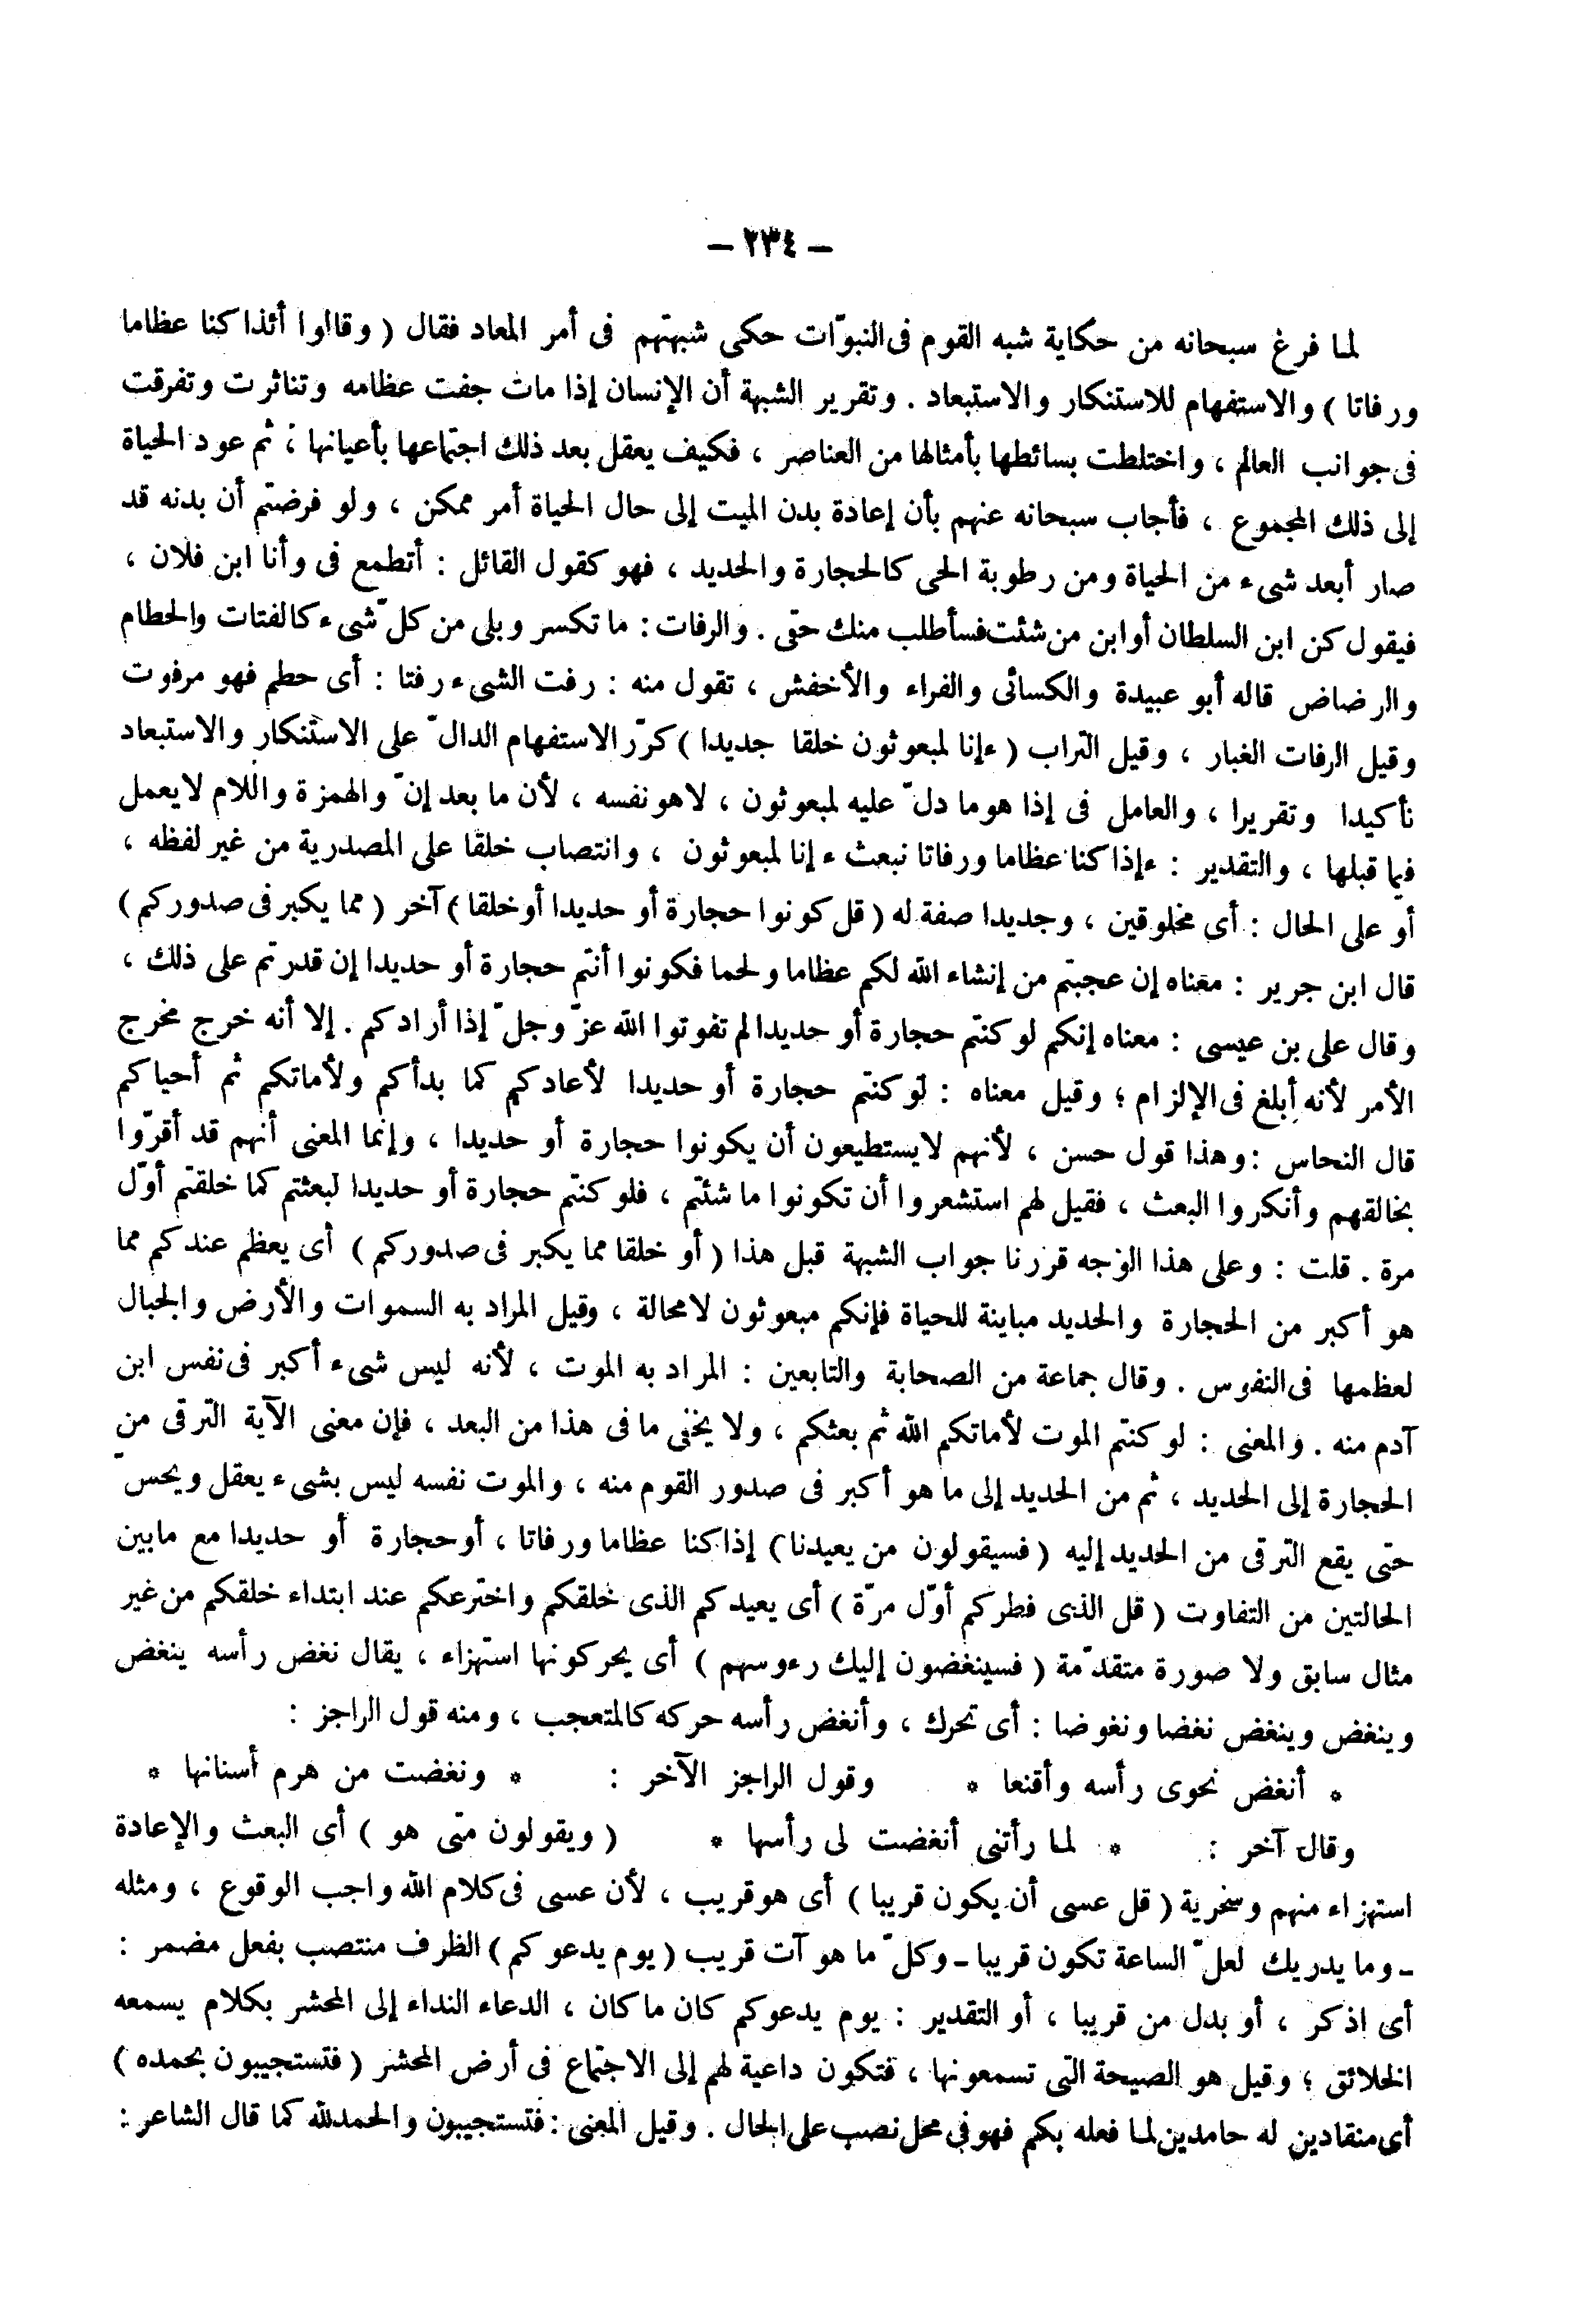 – ٢٣٤ –
لما فرغ سبحانه من حكاية شبه القوم فى النبوّات حكى شبهتهم فى أمر المعاد فقال ( وقالوا أئذا كنا عظاما
ورفاتا ) والاستفهام للاستنكار والاستبعاد . وتقرير الشبهة أن الإنسان إذا مات جفت عظامه وتناثرت وتفرقت
فى جوانب العالم ، واختلطت بسائطها بأمثالها من العناصر ، فكيف يعقل بعد ذلك اجتماعها بأعيانها ، ثم عود الحياة
إلى ذلك المجموع ، فأجاب سبحانه عنهم بأن إعادة بدن الميت إلى حال الحياة أمر ممكن ، ولو فرضتم أن بدنه قد
صار أبعد شىء من الحياة ومن رطوبة الحى كالحجارة والحديد ، فهو كقول القائل : أتطمع فى وأنا ابن فلان ،
فيقول كن ابن السلطان أوابن من شئت فسأطلب منك حقى . والرفات : ما تكسر وبلى من كلّ شىء كالفتات والحطام
والرضاض قاله أبو عبيدة والكسائى والفراء والأخفش ، تقول منه : رفت الشىء رفتا : أى حطم فهو مرفوت
وقيل الرفات الغبار ، وقيل التراب ( ءإنا لمبعوثون خلقا جديدا ) كرّر الاستفهام الدالّ على الاستنكار والاستبعاد
تأكيدا وتقريرا ، والعامل فى إذا هو ما دلّ عليه لمبعوثون ، لاهو نفسه ، لأن ما بعد إنّ والهمزة واللام لايعمل
فيما قبلها ، والتقدير : ءإذا كنا عظاما ورفاتا نبعث ءإنا لمبعوثون ، وانتصاب خلقا على المصدرية من غير لفظه ،
أو على الحال : أى مخلوقين ، وجديدا صفة له ( قل كونوا حجارة أو حديدا أو خلقا ) آخر ( مما يكبر فى صدوركم )
قال ابن جرير : معناه إن عجبتم من إنشاء الله لكم عظاما ولحما فكونوا أنتم حجارة أو حديدا إن قدرتم على ذلك ،
وقال على بن عيسى : معناه إنكم لو كنتم حجارة أو حديدا لم تفوتوا الله عزّ وجلّ إذا أرادكم . إلا أنه خرج مخرج
الأمر لأنه أبلغ فى الإلزام ؛ وقيل معناه : لو كنتم حجارة أو حديدا لأعادكم كما بدأكم ولأماتكم ثم أحياكم
قال النحاس : وهذا قول حسن ، لأنهم لايستطيعون أن يكونوا حجارة أو حديدا ، وإنما المعنى أنهم قد أقرّوا
بخالقهم وأنكروا البعث ، فقيل لهم استشعروا أن تكونوا ما شئتم ، فلو كنتم حجارة أو حديدا لبعثتم كما خلقتم أوّل
مرة . قلت : وعلى هذا الوجه قررنا جواب الشبهة قبل هذا ( أو خلقا مما يكبر فى صدوركم ) أى يعظم عندكم مما
هو أكبر من الحجارة والحديد مباينة للحياة فإنكم مبعوثون لامحالة ، وقيل المراد به السموات والأرض والجبال
لعظمها فى النفوس . وقال جماعة من الصحابة والتابعين : المراد به الموت ، لأنه ليس شىء أكبر فى نفس ابن
آدم منه . والمعنى : لو كنتم الموت لأماتكم الله ثم بعثكم ، ولا يخفى ما فى هذا من البعد ، فإن معنى الآية الترقى من
الحجارة إلى الحديد ، ثم من الحديد إلى ما هو أكبر فى صدور القوم منه ، والموت نفسه ليس بشىء يعقل ويحسّ
حتى يقع الترقى من الحديد إليه ( فسيقولون من يعيدنا ) إذا كنا عظاما ورفاتا ، أو حجارة أو حديدا مع مابين
الحالتين من التفاوت ( قل الذى فطركم أوّل مرّة ) أى يعيدكم الذى خلقكم واخترعكم عند ابتداء خلقكم من غير
مثال سابق ولا صورة متقدّمة ( فسينغضون إليك رءوسهم ) أى يحركونها استهزاء ، يقال نغض رأسه ينغض
وينغض وينغض نغضا ونغوضا : أى تحرك ، وأنغض رأسه حركه كالمتعجب ، ومنه قول الراجز :
* أنغض نحوى رأسه وأقنعا * وقول الراجز الآخر : * ونغضت من هرم أسنانها *
وقال آخر : * لما رأتنى أنغضت لى رأسها * ( ويقولون متى هو ) أى البعث والإعادة
استهزاء منهم وسخرية ( قل عسى أن يكون قريبا ) أى هو قريب ، لأن عسى فى كلام الله واجب الوقوع ، ومثله
ـ وما يدريك لعلّ الساعة تكون قريبا ـ وكلّ ما هو آت قريب ( يوم يدعوكم ) الظرف منتصب بفعل مضمر :
أى اذكر ، أو بدل من قريبا ، أو التقدير : يوم يدعوكم كان ما كان ، الدعاء النداء إلى المحشر بكلام يسمعه
الخلائق ؛ وقيل هو الصيحة التى تسمعونها ، فتكون داعية لهم إلى الاجتماع فى أرض المحشر ( فتستجيبون بحمده )
أى منقادين له حامدين لما فعله بكم فهو فى محل نصب على الحال . وقيل المعنى : فتستجيبون والحمد لله كما قال الشاعر :